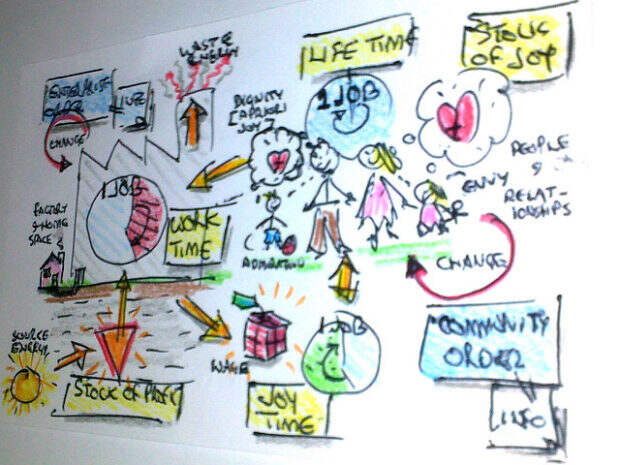 WASTE
ENERGY
LIFE TIME
STOCK
OF JOY
ENTERPRISE
ORDER
CHANGE
DIGNITY
[APRIORI
JOY]
1 JOB
PEOPLE
&
RELAT-
IONSHIPS
ENVY
1 JOB
FACTORY
& HOME
SPACE
WORK
TIME
ADMIRATION
CHANGE
SOURCE
ENERGY
WAGE
1 JOB
COMMUNITY
ORDER
STOCK OF PROFIT
JOY
TIME
INFO